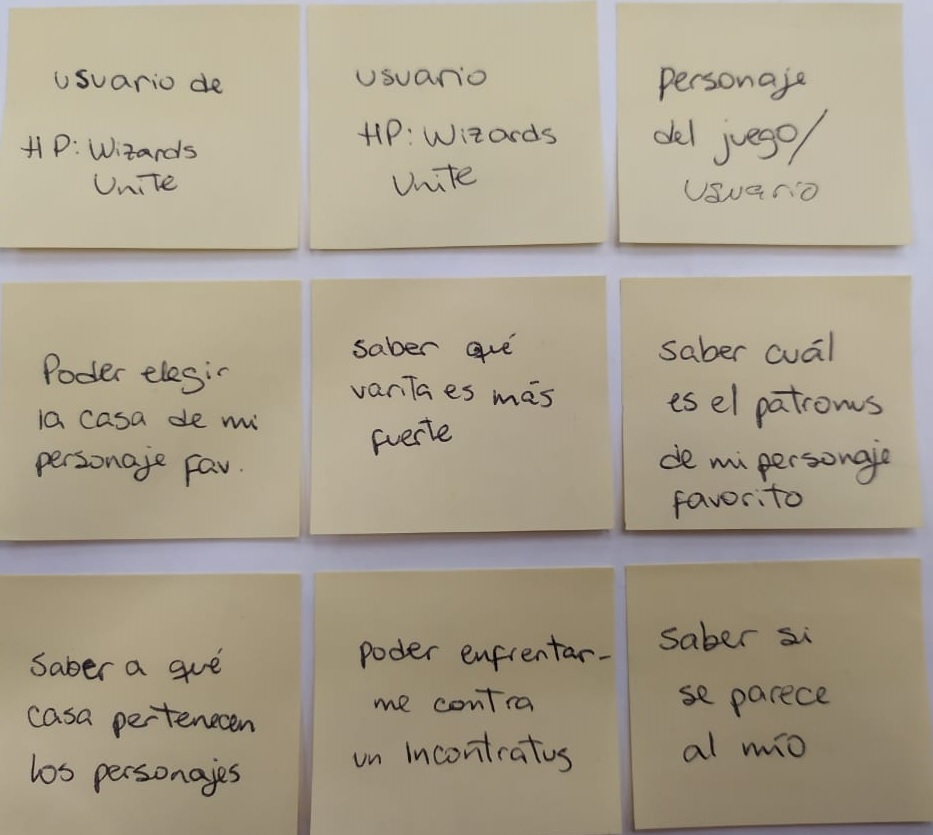 usuario de
HP: Wizards
Unite
usuario
HP: Wizards
Unite
personaje
del juego/
usuario
Poder elegir
la casa de mi
personaje fav.
saber qué
varita es más
fuerte
saber cuál
es el patronus
de mi personaje
favorito
saber a qué
casa pertenecen
los personajes
poder enfrentar-
me contra
un Incontratus
saber si
se parece
al mío